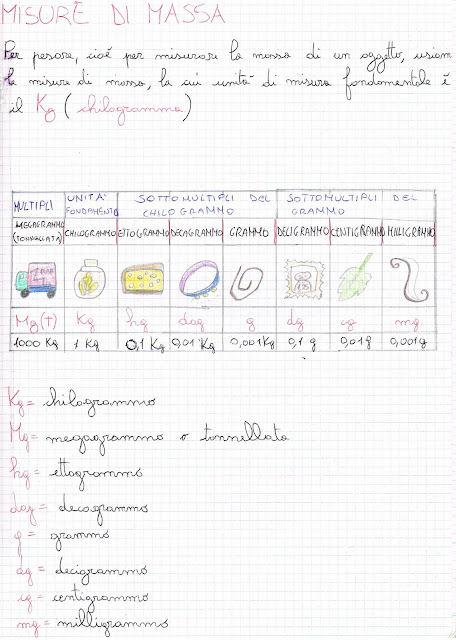 MISURE DI MASSA
Per pesare, cioé per misurare la massa di un oggetto, usiamo
le misure di massa, la cui unitá di misura fondamentale é
il Kg (chilogrammo)
MULTIPLI UNITA' FONDAMENTO SOTTOMULTIPLI DEL CHILOGRAMMO SOTTOMULTIPLI DEL GRAMMO
MEGAGRAMMO (TONNELLATA) CHILOGRAMMO ETTOGRAMMO DECAGRAMMO GRAMMO DECIGRAMMO CENTIGRAMMO MILLIGRAMMO
Mg(T) Kg hg dag g dg cg mg
1000 Kg 1 Kg 0,1 Kg 0,01 Kg 0,001Kg 0,1 g 0,01g 0,001g
Kg = chilogrammo
Mg = megagrammo o tonnellata
hg = ettogrammo
dag = decagrammo
g = grammo
dg = decigrammo
cg = centigrammo
mg = milligrammo